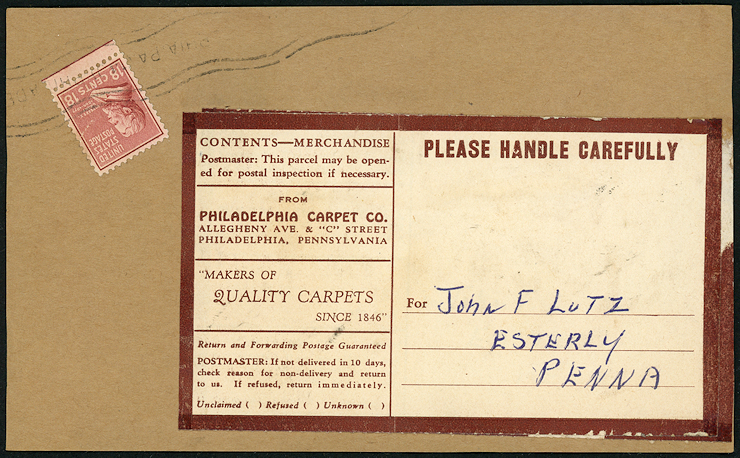 18 CENTS 18
UNITED
STATES
POSTAGE
CONTENTS—MERCHANDISE
Postmaster: This parcel may be open-
ed for postal inspection if necessary.
FROM
PHILADELPHIA CARPET CO.
ALLEGHENY AVE. & "C" STREET
PHILADELPHIA, PENNSYLVANIA
"MAKERS OF
QUALITY CARPETS
SINCE 1846"
Return and Forwarding Postage Guaranteed
POSTMASTER: If not delivered in 10 days,
check reason for non-delivery and return
to us. If refused, return immediately.
Unclaimed ( ) Refused ( ) Unknown ( )
PLEASE HANDLE CAREFULLY
For JOHN F LUTZ
ESTERLY
PENNA